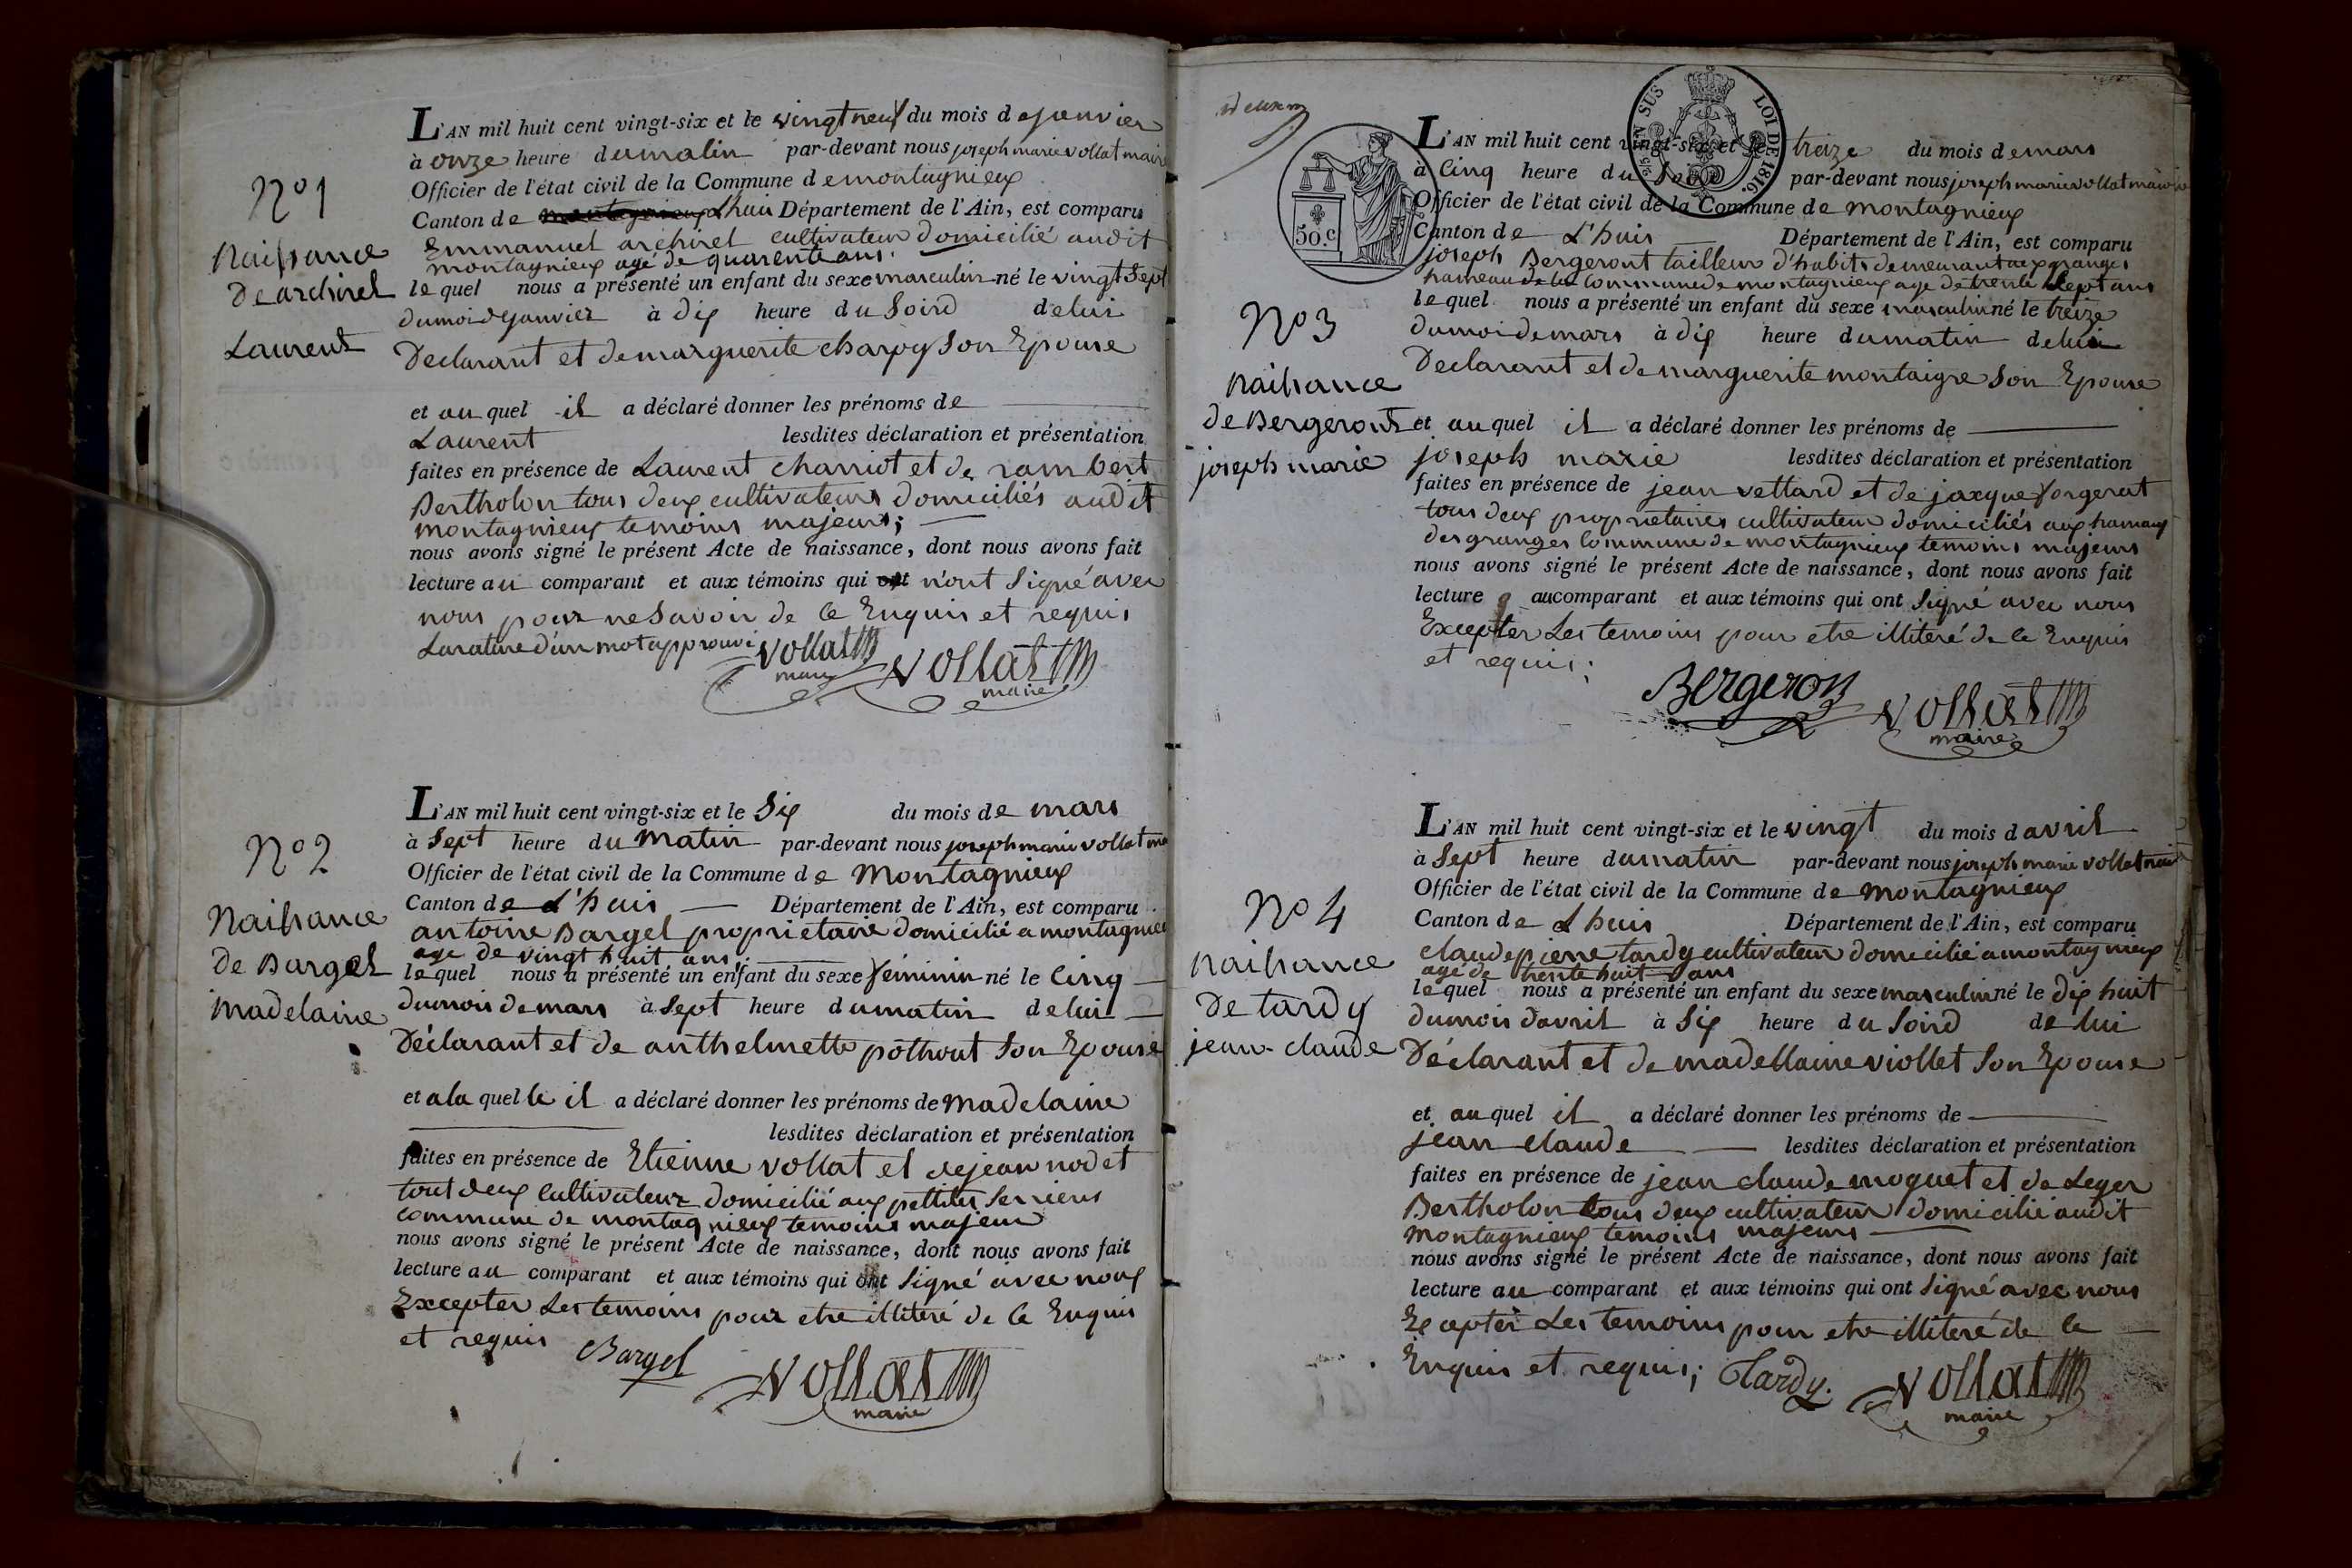 N°1
Naissance
De archirel
Laurent
L'AN mil huit cent vingt-six et le vingt neuf du mois de janvier
à onze heure du matin par-devant nous joseph marie vollat maire
Officier de l'état civil de la Commune de montagnieux
Canton de Lhuis Département de l'Ain, est comparu
Emmanuel archirel cultivateur domicilié audit
montagnieux agé de quarente ans.
lequel nous a présenté un enfant du sexe masculin né le vingt sept
du moi de janvier à dix heure du soird de lui
Declarant et de marguerite charpy son Epouse
et au quel il a déclaré donner les prénoms de
Laurent lesdites déclaration et présentation
faites en présence de Laurent charriot et de rambert
Bertholon tous deux cultivateurs domiciliés audit
montagnieux temoins majeurs;
nous avons signé le présent Acte de naissance, dont nous avons fait
lecture au comparant et aux témoins qui n'ont signé avec
nous pour ne savoir de ce Enquis et requis
La rature d'un mot approuvé vollat vollat
maire maire
N°2
Naissance
de Bargel
Madelaine
L'AN mil huit cent vingt-six et le six du mois de mars
à sept heure du matin par-devant nous joseph marie vollat
Officier de l'état civil de la Commune de Montagnieux
Canton de L'huis Département de l'Ain, est comparu
antoine Bargel proprietaire domicilié a montagnieu
age de vingt huit ans,
lequel nous a présenté un enfant du sexe féminin né le Cinq
du mois de mars à sept heure du matin de lui
Déclarant et de anthelmette pothout son Epouse
et a la quelle il a déclaré donner les prénoms de Madelaine
lesdites déclaration et présentation
faites en présence de Etienne vollat et de jean nodet
tout deux cultivateur domicilié aux pettites serriens
commune de montagnieux temoins majeur
nous avons signé le présent Acte de naissance, dont nous avons fait
lecture au comparant et aux témoins qui ont signé avec nous
Excepter Les temoins pour etre illiteré de ce Enquis
et requis Bargel vollat
maire
N°3
Naissance
de Bergeront
joseph marie
50.c
SUS
LOI DE 1816.
L'AN mil huit cent vingt-six et le treize du mois de mars
à Cinq heure du Soird par-devant nous joseph marie vollat maire
Officier de l'état civil de la Commune de montagnieux
Canton de L'huis Département de l'Ain, est comparu
joseph Bergeront tailleur d'habits demeurant aux granges
hameau de la commune de montagnieux age de trente sept ans
lequel nous a présenté un enfant du sexe masculin né le treize
du moi de mars à dix heure du matin de lui
Declarant et de marguerite montaigre son Epouse
et au quel il a déclaré donner les prénoms de
joseph marie lesdites déclaration et présentation
faites en présence de jean vettard et de jacque forgerat
tous deux proprietaires cultivateur domiciliés aux hamaux
des granges Commune de montagnieux temoins majeurs
nous avons signé le présent Acte de naissance, dont nous avons fait
lecture au comparant et aux témoins qui ont signé avec nous
Excepter Les temoins pour etre illiteré de ce Enquis
et requis;
Bergeron vollat
maire
N°4
Naissance
De tardy
jean-claude
L'AN mil huit cent vingt-six et le vingt du mois d avril
à sept heure du matin par-devant nous joseph marie vollat
Officier de l'état civil de la Commune de montagnieux
Canton de Lhuis Département de l'Ain, est comparu
claude pierre tardy cultivateur domicilié a montagnieux
agé de trente huit ans
lequel nous a présenté un enfant du sexe masculin né le dix huit
du mois d'avril à six heure du soird de lui
Déclarant et de madellaine viollet son Epouse
et au quel il a déclaré donner les prénoms de
jean claude lesdites déclaration et présentation
faites en présence de jean claude moguet et de Leger
Bertholon tous deux cultivateur domicilié audit
Montagnieux temoins majeurs
nous avons signé le présent Acte de naissance, dont nous avons fait
lecture au comparant et aux témoins qui ont signé avec nous
Excepter Les temoins pour etre illiteré de ce
Enquis et requis; Tardy. vollat
maire